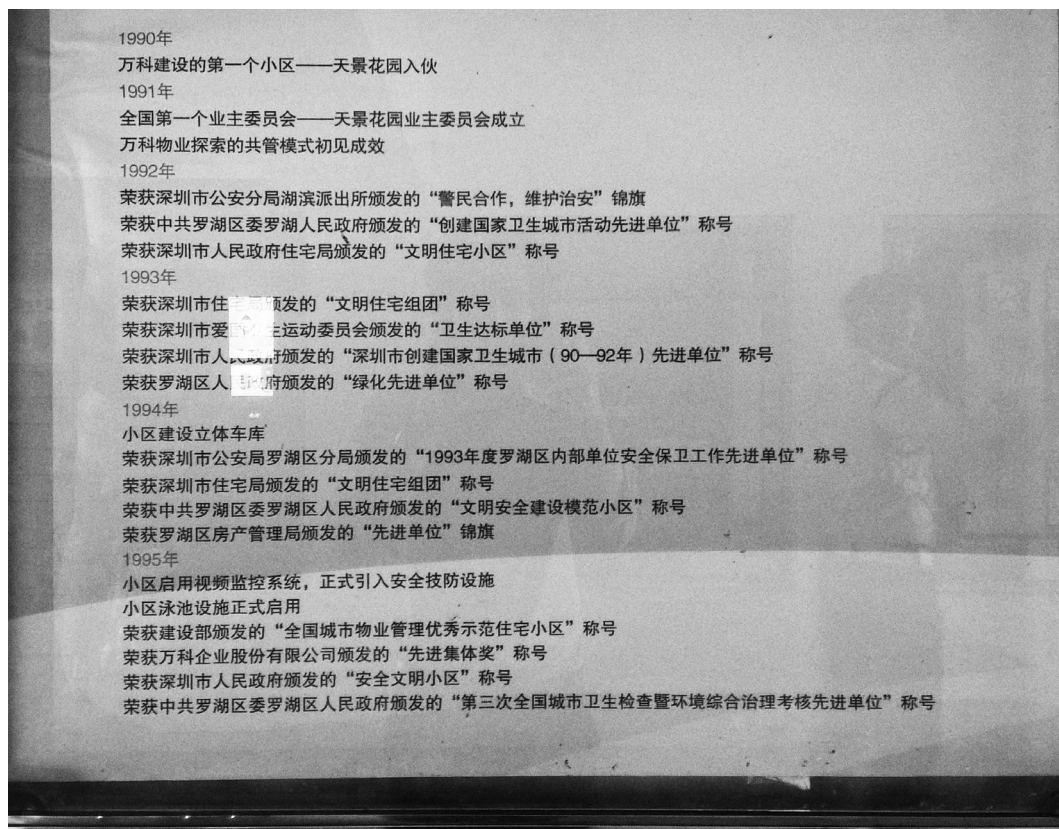 1990年
万科建设的第一个小区——天景花园入伙
1991年
全国第一个业主委员会——天景花园业主委员会成立
万科物业探索的共管模式初见成效
1992年
荣获深圳市公安分局湖滨派出所颁发的“警民合作，维护治安”锦旗
荣获中共罗湖区委罗湖人民政府颁发的“创建国家卫生城市活动先进单位”称号
荣获深圳市人民政府住宅局颁发的“文明住宅小区”称号
1993年
荣获深圳市住宅局颁发的“文明住宅组团”称号
荣获深圳市爱国卫生运动委员会颁发的“卫生达标单位”称号
荣获深圳市人民政府颁发的“深圳市创建国家卫生城市（90—92年）先进单位”称号
荣获罗湖区人民政府颁发的“绿化先进单位”称号
1994年
小区建设立体车库
荣获深圳市公安局罗湖区分局颁发的“1993年度罗湖区内部单位安全保卫工作先进单位”称号
荣获深圳市住宅局颁发的“文明住宅组团”称号
荣获中共罗湖区委罗湖区人民政府颁发的“文明安全建设模范小区”称号
荣获罗湖区房产管理局颁发的“先进单位”锦旗
1995年
小区启用视频监控系统，正式引入安全技防设施
小区泳池设施正式启用
荣获建设部颁发的“全国城市物业管理优秀示范住宅小区”称号
荣获万科企业股份有限公司颁发的“先进集体奖”称号
荣获深圳市人民政府颁发的“安全文明小区”称号
荣获中共罗湖区委罗湖区人民政府颁发的“第三次全国城市卫生检查暨环境综合治理考核先进单位”称号